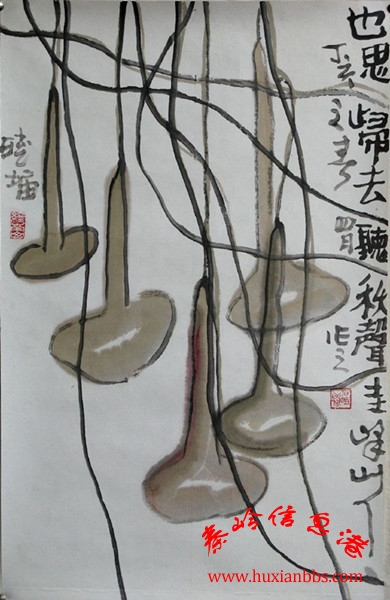 也思歸去聽秋聲圭峰山下
丁亥之春
秦岭信息港
www.huxianbbs.com